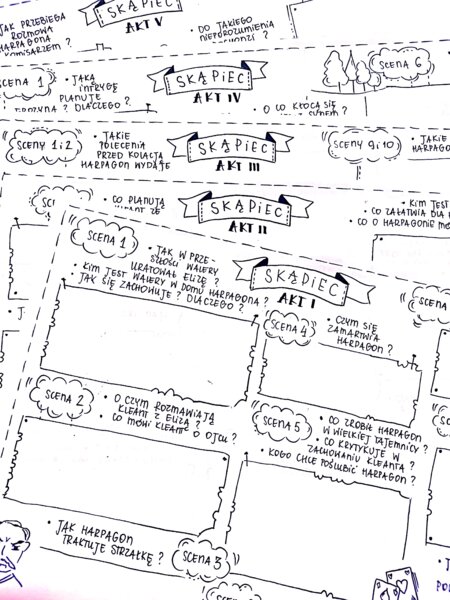 JAK PRZEBIEGA
ROZMOWA
HARPAGONA
KOMISARZEM ?
SKĄPIEC
AKT V
DO TAKIEGO
NIEPOROZUMIENIA
SCENA 1
• JAKĄ
INTRYGĘ
PLANUJE
FROZYNA ? DLACZEGO ?
SKĄPIEC
AKT IV
SCENA 6
• O CO KŁÓCĄ SIĘ
SCENY 1 i 2
• JAKIE
POLECENIA
PRZED KOLACJĄ
HARPAGON WYDAJE
SKĄPIEC
AKT III
SCENY 9 i 10
• JAKIE
HARPAGON
• CO PLANUJĄ
SKĄPIEC
AKT II
• KIM JEST
• CO ZAŁATWIA DLA
• CO O HARPAGONIE
SCENA 1
• JAK W PRZE-
SZŁOŚCI WALERY
URATOWAŁ ELIZĘ ?
• KIM JEST WALERY W DOMU HARPAGONA ?
JAK SIĘ ZACHOWUJE ? DLACZEGO ?
SKĄPIEC
AKT I
SCENA 4
• CZYM SIĘ
ZAMARTWIA
HARPAGON ?
SCENA
SCENA 2
• O CZYM ROZMAWIAJĄ
KLEANT Z ELIZĄ ?
• CO MÓWI KLEANT O OJCU ?
SCENA 5
• CO ZROBIŁ HARPAGON
W WIELKIEJ TAJEMNICY ?
• CO KRYTYKUJE W
ZACHOWANIU KLEANTA ?
• KOGO CHCE POŚLUBIĆ HARPAGON ?
• JAK HARPAGON
TRAKTUJE STRZAŁKĘ ?
SCENA 3